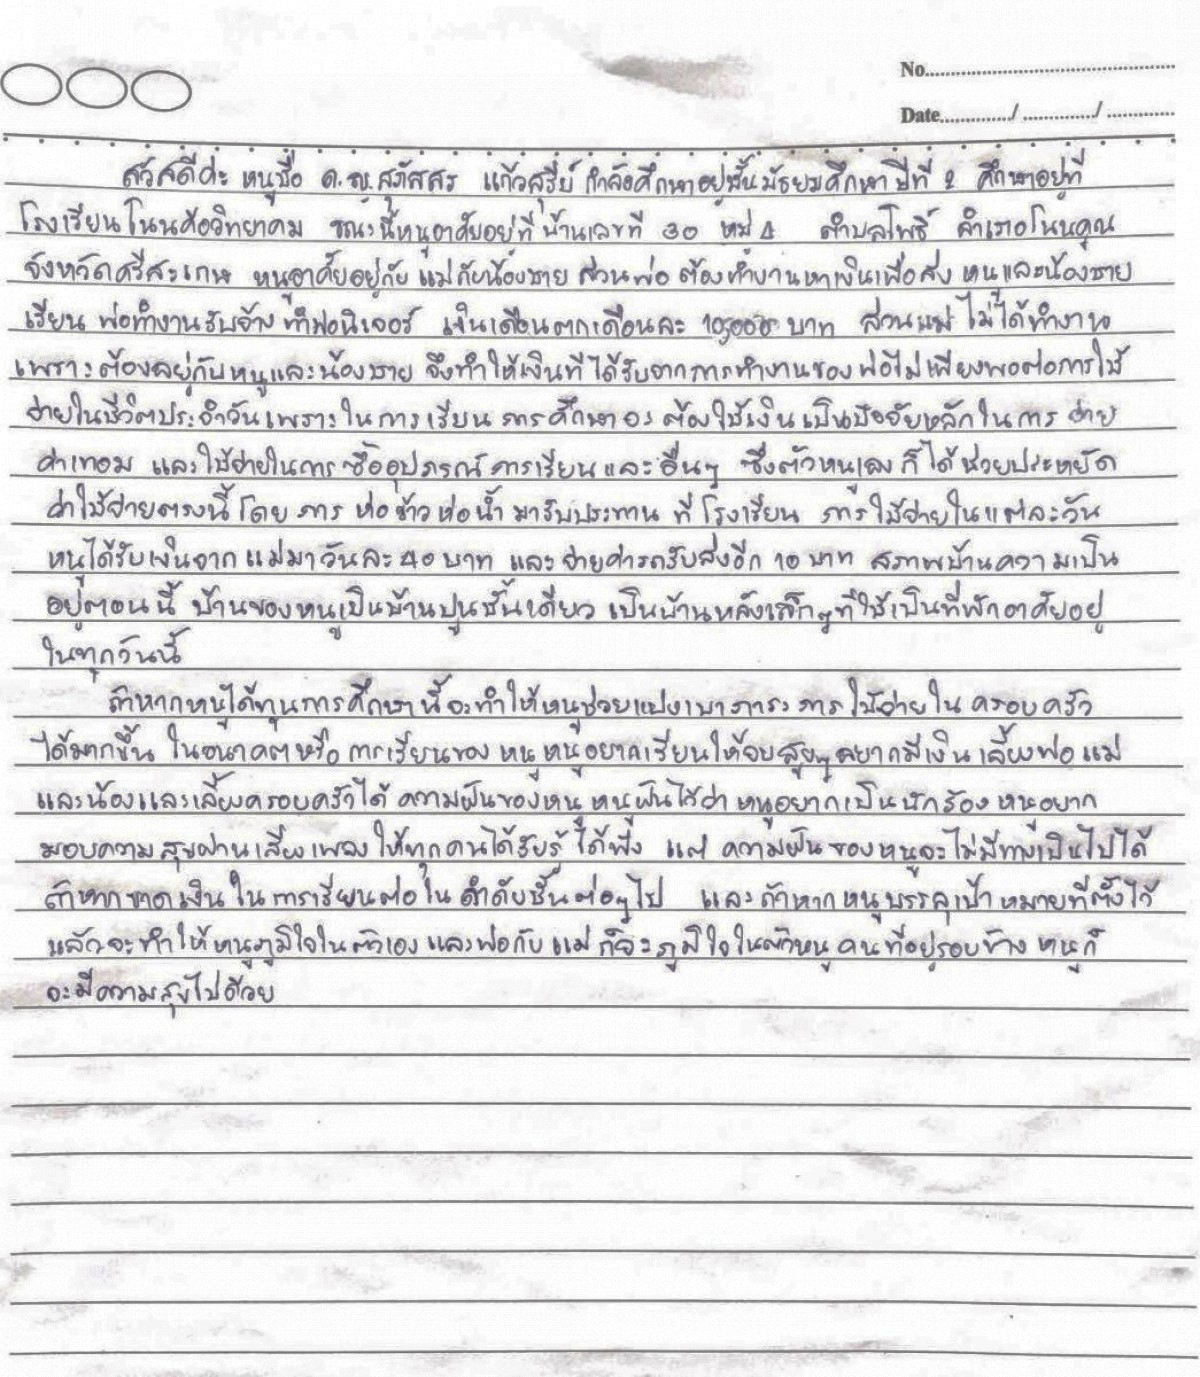 No.
Date / /
สวัสดีค่ะ หนูชื่อ ด.ญ.สุภัสสร แก้วสุรีย์ กำลังศึกษาอยู่ชั้นมัธยมศึกษาปีที่ 2 ศึกษาอยู่ที่
โรงเรียนโนนค้อวิทยาคม ขณะนี้หนูอาศัยอยู่ที่บ้านเลขที่ 30 หมู่ 4 ตำบลโพธิ์ อำเภอโนนคูณ
จังหวัดศรีสะเกษ หนูอาศัยอยู่กับ แม่กับน้องชาย ส่วนพ่อ ต้องทำงานหาเงินเพื่อส่ง หนูและน้องชาย
เรียน พ่อทำงานรับจ้าง ทำฟอนิเจอร์ เงินเดือนตกเดือนละ 10,000 บาท ส่วนแม่ ไม่ได้ทำงาน
เพราะต้องอยู่กับหนูและน้องชาย จึงทำให้เงินที่ได้รับจากการทำงานของพ่อไม่เพียงพอต่อการใช้
จ่ายในชีวิตประจำวันเพราะในการเรียน การศึกษาจะต้องใช้เงินเป็นปัจจัยหลักในการ จ่าย
ค่าเทอม และใช้จ่ายในการซื้ออุปกรณ์การเรียนและอื่นๆ ซึ่งตัวหนูเอง ก็ได้ช่วยประหยัด
ค่าใช้จ่ายตรงนี้ โดย การ ห่อข้าวห่อน้ำ มารับประทาน ที่โรงเรียน การใช้จ่ายในแต่ละวัน
หนูได้รับเงินจาก แม่มาวันละ 40 บาท และจ่ายค่ารถรับส่งอีก 10 บาท สภาพบ้านความเป็น
อยู่ตอนนี้ บ้านของหนูเป็นบ้านปูนชั้นเดียว เป็นบ้านหลังเล็กๆที่ใช้เป็นที่พักอาศัยอยู่
ในทุกวันนี้
ถ้าหากหนูได้ทุนการศึกษานี้จะทำให้หนูช่วยแบ่งเบาภาระการใช้จ่ายใน ครอบครัว
ได้มากขึ้น ในอนาคตหรือการเรียนของ หนู หนูอยากเรียนให้จบสูงๆ อยากมีเงินเลี้ยงพ่อ แม่
และน้องและเลี้ยงครอบครัวได้ ความฝันของหนู หนูฝันไว้ว่า หนูอยากเป็นนักร้อง หนูอยาก
มอบความสุขผ่านเสียงเพลงให้ทุกคนได้รับรู้ ได้ฟัง แต่ ความฝันของหนูจะไม่มีทางเป็นไปได้
ถ้าหากขาดเงินในการเรียนต่อใน ลำดับชั้นต่อๆไป และถ้าหากหนูบรรลุเป้าหมายที่ตั้งไว้
แล้วจะทำให้หนูภูมิใจในตัวเอง และพ่อกับแม่ ก็จะภูมิใจในตัวหนู คนที่อยู่รอบข้าง หนูก็
จะมีความสุขไปด้วย